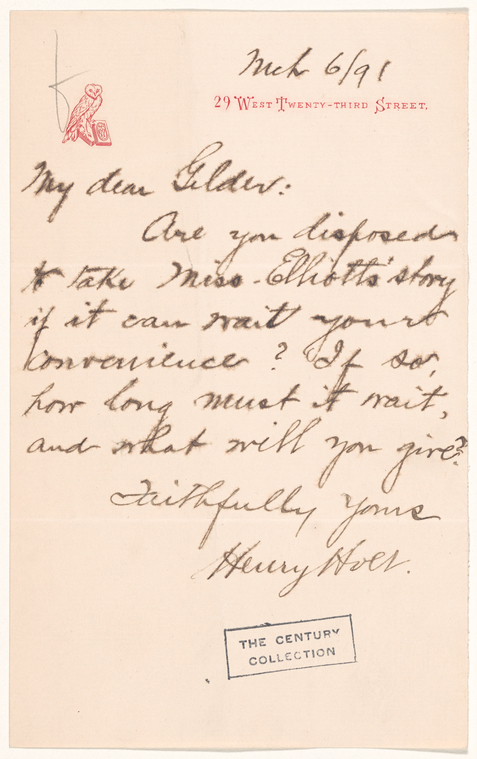 Mch 6/91
29 WEST TWENTY-THIRD STREET.
My dear Gilder:
Are you disposed
to take Miss Elliott's story
if it can wait your
convenience? If so,
how long must it wait,
and what will you give?
Faithfully yours
Henry Holt.
THE CENTURY
COLLECTION